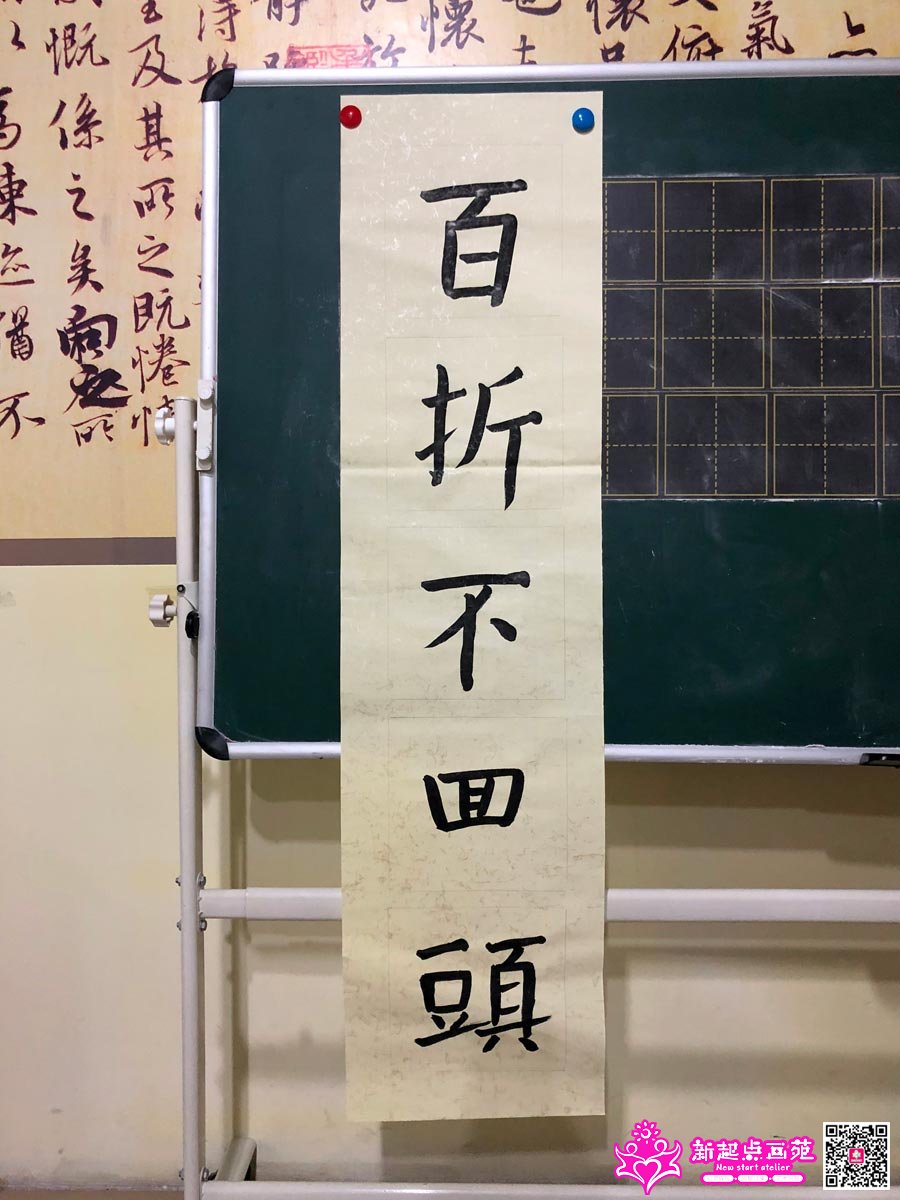 百折不囬頭
氣
懷
懷
至及其所之既惓情
慨係之矣向之所
為陳迹猶不
新起点画苑
New start atelier